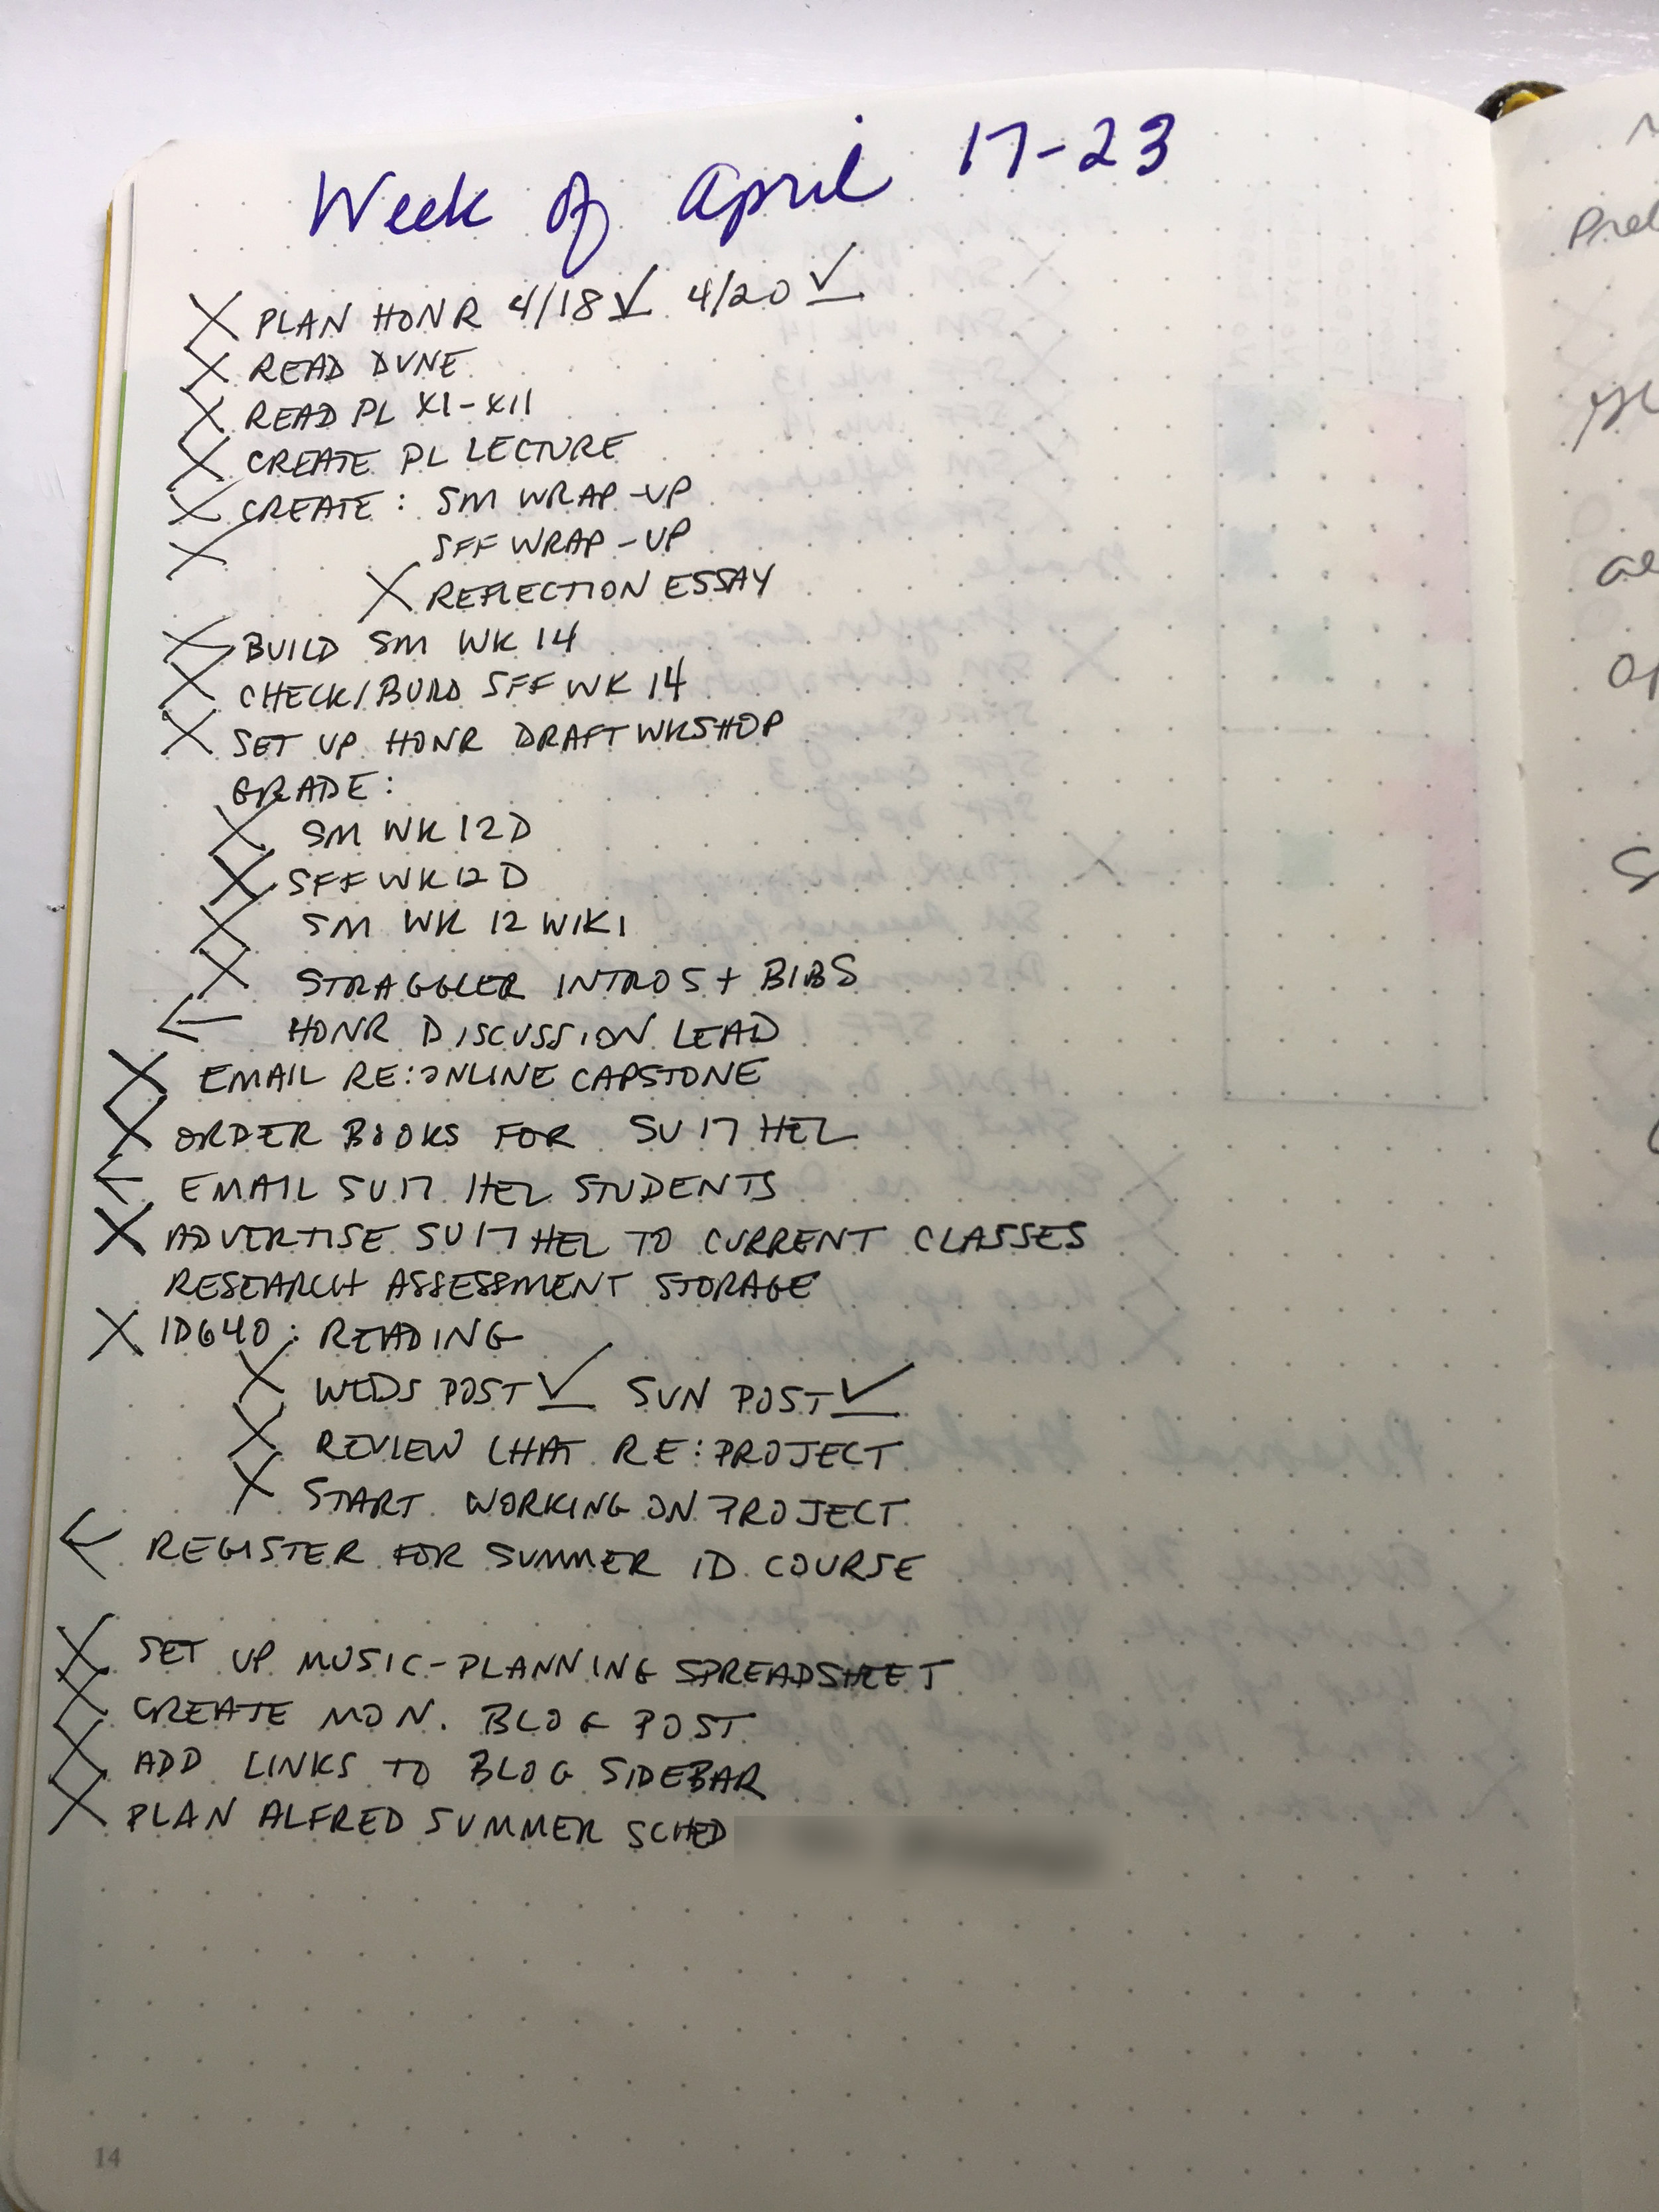 Week of April 17-23
X PLAN HONR 4/18 ✓ 4/20 ✓
X READ DUNE
X READ PL XI-XII
X CREATE PL LECTURE
X CREATE: SM WRAP-UP
X SFF WRAP-UP
X REFLECTION ESSAY
X BUILD SM WK 14
X CHECK/BUILD SFF WK 14
X SET UP HONR DRAFT WKSHOP
GRADE:
X SM WK 12 D
X SFF WK 12 D
X SM WK 12 WIKI
X STRAGGLER INTROS + BIBS
← HONR DISCUSSION LEAD
X EMAIL RE: ONLINE CAPSTONE
X ORDER BOOKS FOR SU17 HEL
← EMAIL SU17 HEL STUDENTS
X ADVERTISE SU17 HEL TO CURRENT CLASSES
RESEARCH ASSESSMENT STORAGE
X ID640: READING
X WEDS POST ✓ SUN POST ✓
X REVIEW CHAT RE: PROJECT
X START WORKING ON PROJECT
← REGISTER FOR SUMMER ID COURSE
X SET UP MUSIC-PLANNING SPREADSHEET
X CREATE MON. BLOG POST
X ADD LINKS TO BLOG SIDEBAR
X PLAN ALFRED SUMMER SCHED
14